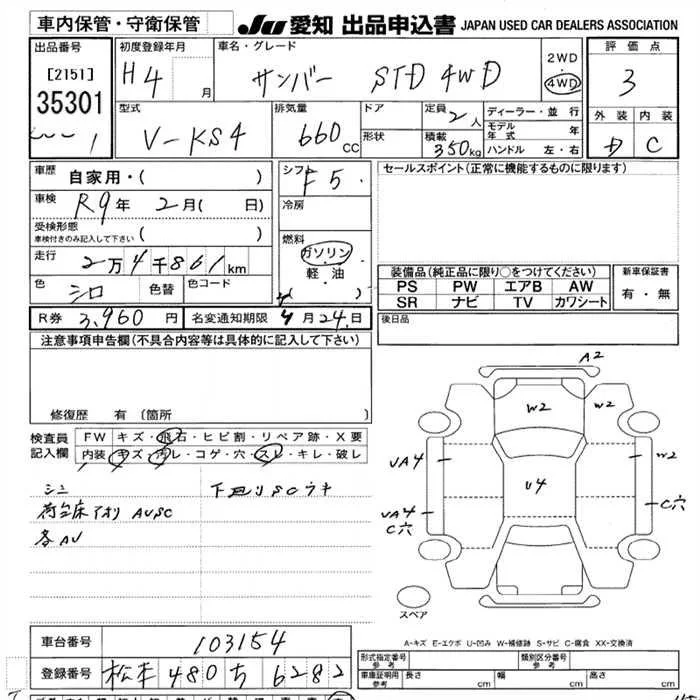 車内保管・守衛保管 JU 愛知 出品申込書 JAPAN USED CAR DEALERS ASSOCIATION
出品番号 初度登録年月 車名・グレード 2WD 評価点
[2151] H4 月 サンバー STD 4WD ・ 4WD 3
35301 型式 排気量 ドア 定員 2人 ディーラー・並行 外装 内装
1 V-KS4 660cc 形状 積載 350kg モデル年式 年 ハンドル 左・右 D C
車歴 自家用・( ) シフト F5 セールスポイント(正常に機能するものに限ります)
車検 R9年 2月( 日) 冷房
受検形態
車検付きのみ記入して下さい ( ) 燃料
走行 2万4千861km ガソリン
軽油 装備品(純正品に限り○をつけてください) 新車保証書
色 シロ 色替 色コード ( ) PS PW エアB AW 有・無
SR ナビ TV カワシート
R券 3,960円 名変通知期限 4月24日 後日品
注意事項申告欄(不具合内容等は具体的に記入して下さい)
修復歴 有 (箇所 )
A2
W2 W2
検査員 FW キズ・飛石・ヒビ割・リペア跡・X要
記入欄 内装 キズ・汚レ・コゲ・穴・スレ・キレ・破レ
UA4 W2
U4
シミ 下廻りSCウキ
荷台床アオリ AUSC
UA4 C穴
C穴
各AU
スペア
A-キズ E-エクボ U-凹み W-補修跡 S-サビ C-腐食 XX-交換済
車台番号 103154
型式指定番号 参考 類別区分番号 参考
登録番号 松本 480 ち 6282
車庫証明用 参考 長さ cm 幅 cm 高さ cm